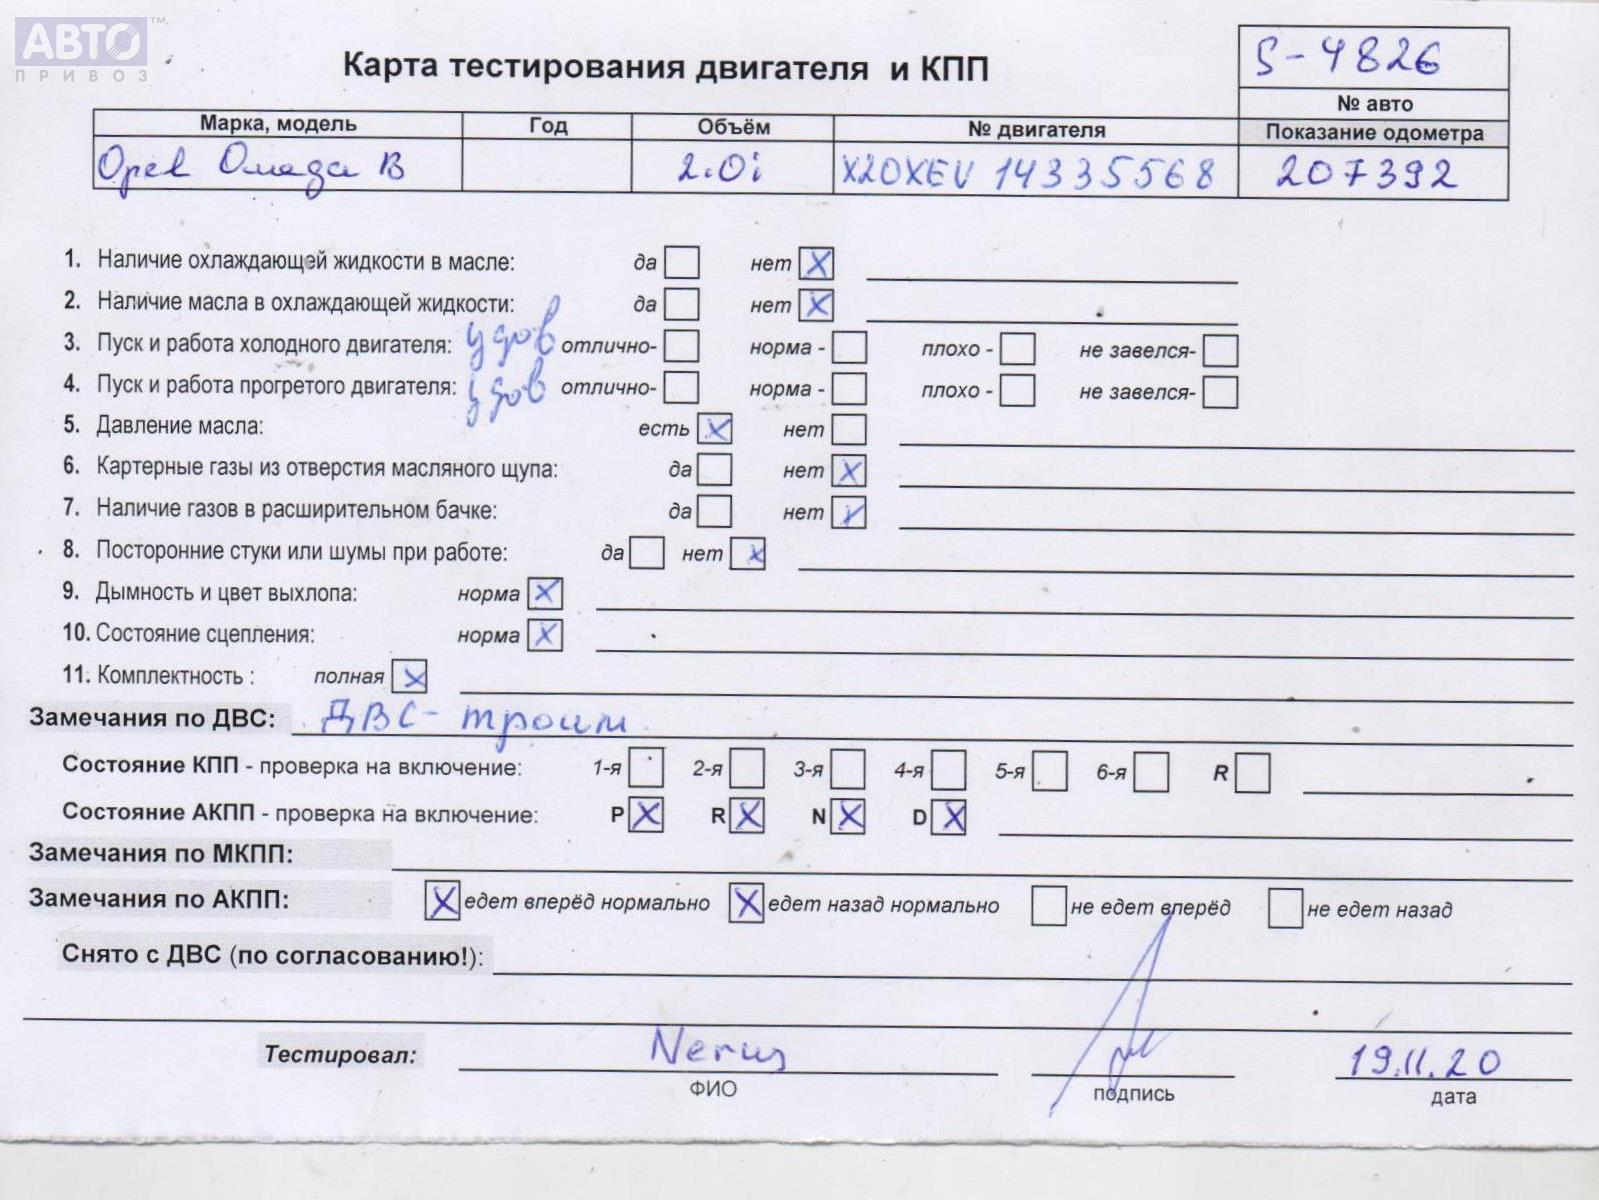 АВТО ™
ПРИВОЗ
Карта тестирования двигателя и КПП
S-4826
№ авто
Марка, модель Год Объём № двигателя Показание одометра
Opel Омега В 2.0i X20XEV 14335568 207392
1. Наличие охлаждающей жидкости в масле: да нет X
2. Наличие масла в охлаждающей жидкости: да нет X
3. Пуск и работа холодного двигателя: удов отлично- норма - плохо - не завелся-
4. Пуск и работа прогретого двигателя: удов отлично- норма - плохо - не завелся-
5. Давление масла: есть X нет
6. Картерные газы из отверстия масляного щупа: да нет X
7. Наличие газов в расширительном бачке: да нет X
8. Посторонние стуки или шумы при работе: да нет X
9. Дымность и цвет выхлопа: норма X
10. Состояние сцепления: норма X
11. Комплектность : полная X
Замечания по ДВС: ДВС - троит
Состояние КПП - проверка на включение: 1-я 2-я 3-я 4-я 5-я 6-я R
Состояние АКПП - проверка на включение: P X R X N X D X
Замечания по МКПП:
Замечания по АКПП: X едет вперёд нормально X едет назад нормально не едет вперёд не едет назад
Снято с ДВС (по согласованию!):
Тестировал: 19.11.20
ФИО подпись дата